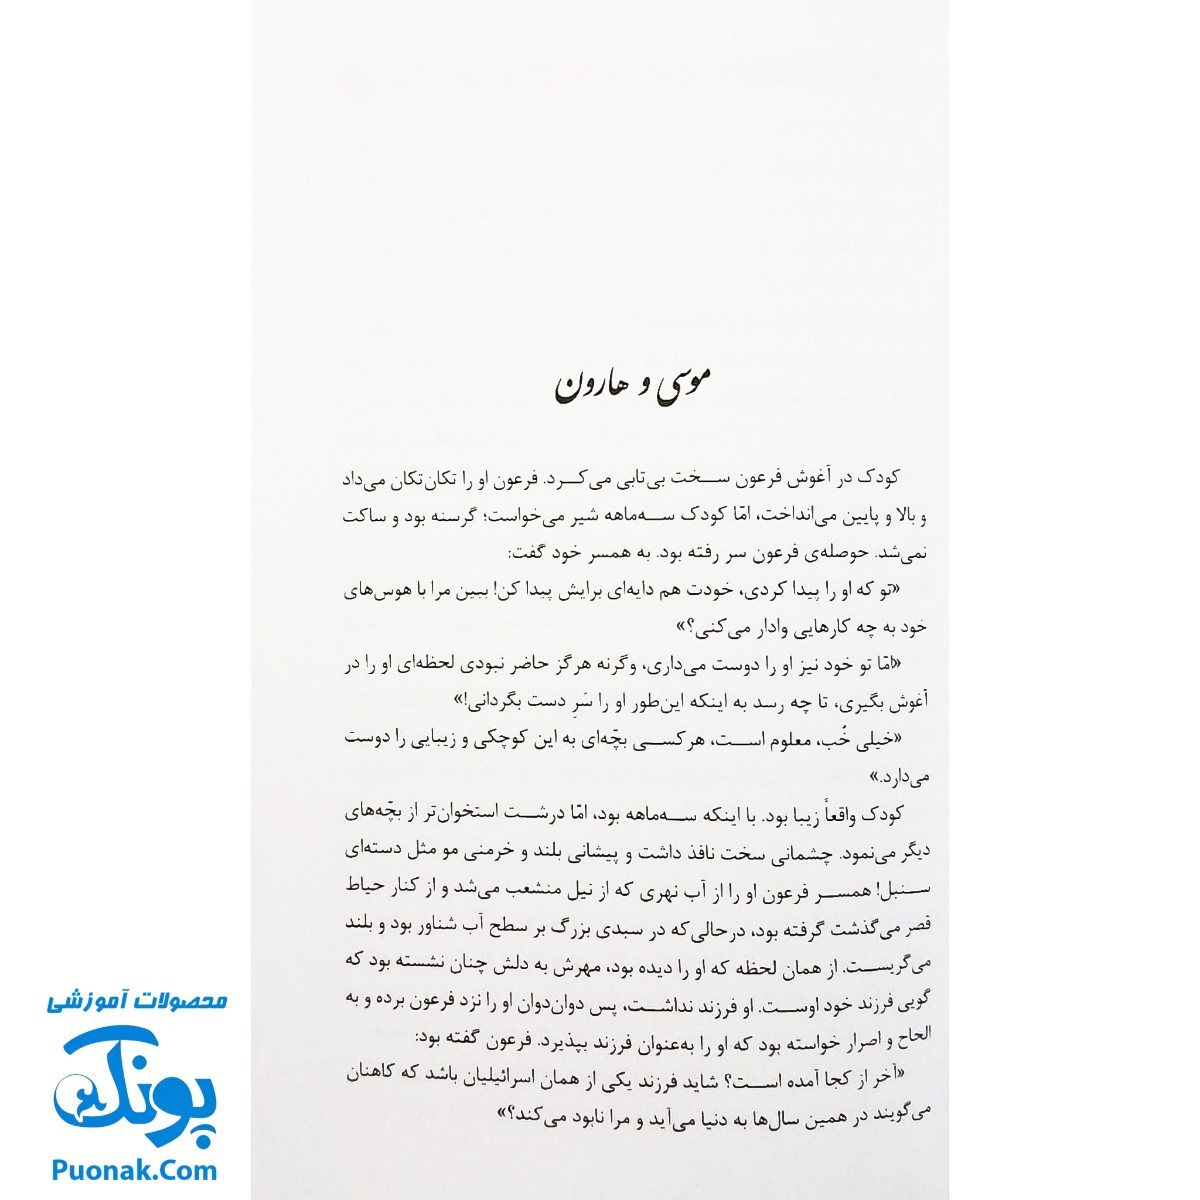 موسی و هارون
کودک در آغوش فرعون سخت بی‌تابی می‌کرد. فرعون او را تکان‌تکان می‌داد
و بالا و پایین می‌انداخت، امّا کودک سه‌ماهه شیر می‌خواست؛ گرسنه بود و ساکت
نمی‌شد. حوصله‌ی فرعون سر رفته بود. به همسر خود گفت:
«تو که او را پیدا کردی، خودت هم دایه‌ای برایش پیدا کن! ببین مرا با هوس‌های
خود به چه کارهایی وادار می‌کنی؟»
«امّا تو خود نیز او را دوست می‌داری، وگرنه هرگز حاضر نبودی لحظه‌ای او را در
آغوش بگیری، تا چه رسد به اینکه این‌طور او را سَرِ دست بگردانی!»
«خیلی خُب، معلوم است، هرکسی بچّه‌ای به این کوچکی و زیبایی را دوست
می‌دارد.»
کودک واقعاً زیبا بود. با اینکه سه‌ماهه بود، امّا درشت استخوان‌تر از بچّه‌های
دیگر می‌نمود. چشمانی سخت نافذ داشت و پیشانی بلند و خرمنی مو مثل دسته‌ای
سنبل! همسر فرعون او را از آب نهری که از نیل منشعب می‌شد و از کنار حیاط
قصر می‌گذشت گرفته بود، درحالی‌که در سبدی بزرگ بر سطح آب شناور بود و بلند
می‌گریست. از همان لحظه که او را دیده بود، مهرش به دلش چنان نشسته بود که
گویی فرزند خود اوست. او فرزند نداشت، پس دوان‌دوان او را نزد فرعون برده و به
الحاح و اصرار خواسته بود که او را به‌عنوان فرزند بپذیرد. فرعون گفته بود:
«آخر از کجا آمده است؟ شاید فرزند یکی از همان اسرائیلیان باشد که کاهنان
می‌گویند در همین سال‌ها به دنیا می‌آید و مرا نابود می‌کند؟»
محصولات آموزشی
پونک
Puonak.Com